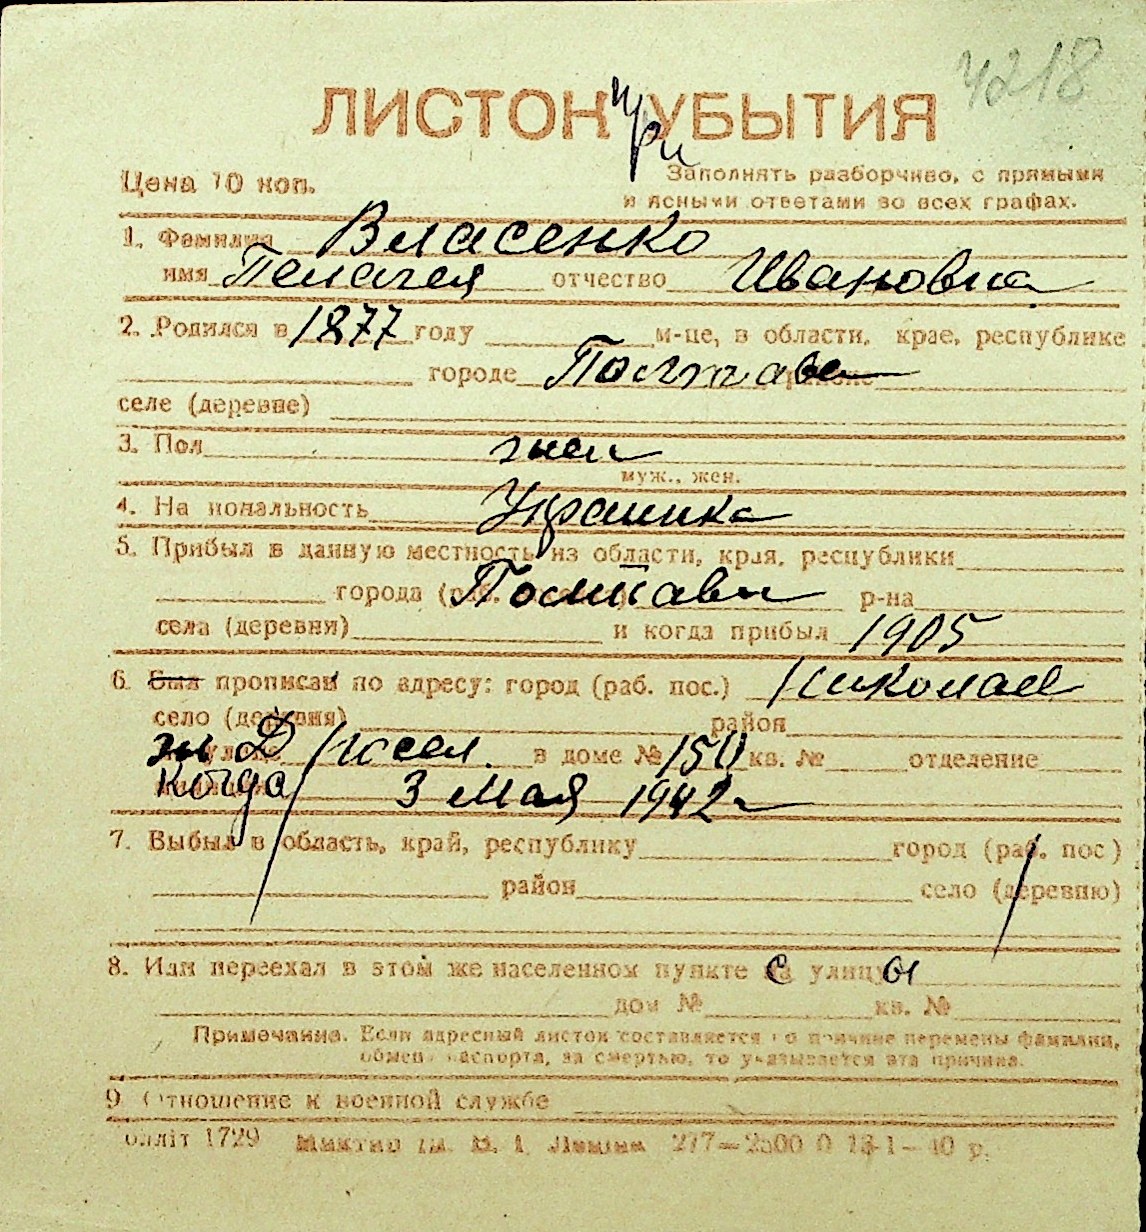 4218
ЛИСТОК при УБЫТИЯ
Цена 10 коп.
Заполнять разборчиво, с прямыми
и ясными ответами во всех графах.
1. Фамилия Власенко
имя Пелагея отчество Ивановна
2. Родился в 1877 году м-це, в области, крае, республике
городе Полтаве
селе (деревне)
3. Пол жен
муж., жен.
4. Национальность Украинка
5. Прибыл в данную местность из области, края, республики
города Полтавы р-на
села (деревня) и когда прибыл 1905
6. Был прописан по адресу: город (раб. пос.) Николаев
село (деревня) район
посел. в доме № 150 кв. № отделение
Когда 3 Мая 1942 г
7. Выбыл в область, край, республику город (раб. пос)
район село (деревню)
8. Или переехал в этом же населенном пункте с улицы
дом № кв. №
Примечание. Если адресный листок составляется по причине перемены фамилии,
обмена паспорта, за смертью, то указывается эта причина.
9. Отношение к военной службе
1729 277—2500 0 13-1—40 р.